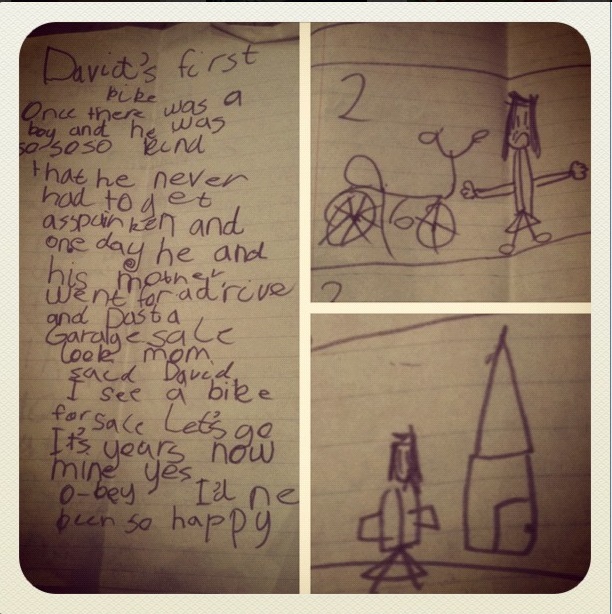 David's first
bike
Once there was a
boy and he was
so so so kind
that he never
had to get
asspainken and
one day he and
his mother
went for adrive
and Dasta
Garalge sale
look mom
sacd David
I see a bike
for sale Let's go
It's years now
mine yes
o-bey I'd ne
been so happy
2
2